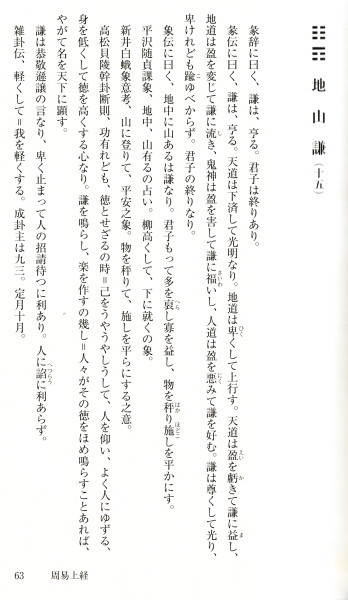 ☷☶ 地山謙（十五）
彖辞に曰く、謙は、亨る。君子は終りあり。
彖伝に曰く、謙は、亨る。天道は下済して光明なり。地道は卑くして上行す。天道は盈を虧きて謙に益し、
地道は盈を変じて謙に流き、鬼神は盈を害して謙に福いし、人道は盈を悪みて謙を好む。謙は尊くして光り、
卑けれども踰ゆべからず。君子の終りなり。
象伝に曰く、地中に山あるは謙なり。君子もって多を裒し寡を益し、物を秤り施しを平かにす。
平沢随貞課象、地中、山有るの占い。柳高くして、下に就くの象。
新井白蛾象意考、山に登りて、平安之象。物を秤りて、施しを平らにする之意。
高松貝陵幹卦断則、功有れども、徳とせざるの時＝己をうやうやしうして、人を仰い、よく人にゆずる、
身を低くして徳を高くする心なり。謙を鳴らし、楽を作すの幾し＝人々がその徳をほめ鳴らすことあれば、
やがて名を天下に顕す。
謙は恭敬遜譲の言なり、卑く止まって人の招請待つに利あり。人に諂に利あらず。
雑卦伝、軽くして＝我を軽くする。成卦主は九三。定月十月。
63 周易上経